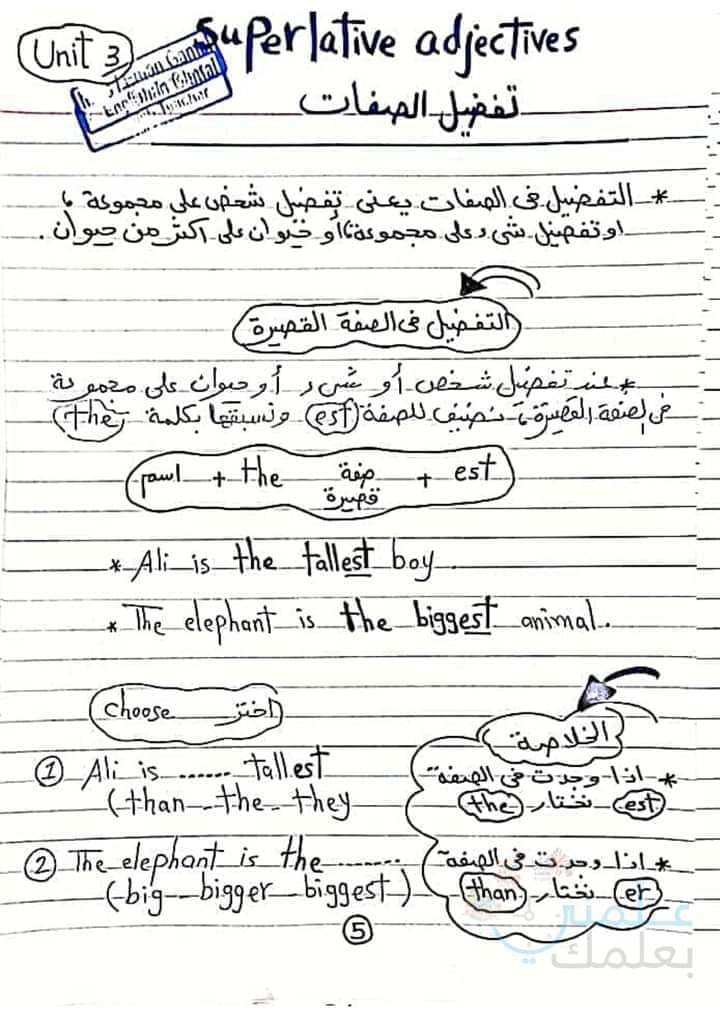 Unit 3
Superlative adjectives
English
Teacher
تفضيل الصفات
* التفضيل فى الصفات يعنى تفضيل شخص على مجموعة ،
او تفضيل شىء على مجموعة، أو حيوان على اكثر من حيوان .
التفضيل فى الصفة القصيرة
* عند تفضيل شخص أو شىء أو حيوان على مجموعة
فى الصفة القصيرة ، نضيف للصفة (est) ونسبقها بكلمة (the)
اسم + the صفة قصيرة + est
* Ali is the tallest boy.
* The elephant is the biggest animal.
choose اختر
① Ali is ...... tallest
(than - the - they
② The elephant is the .......
(big - bigger - biggest)
الخلاصة
* اذا وجدت فى الصفة
est نختار the
* اذا وجدت فى الصفة
er نختار than
⑤
علمني
بعلمك